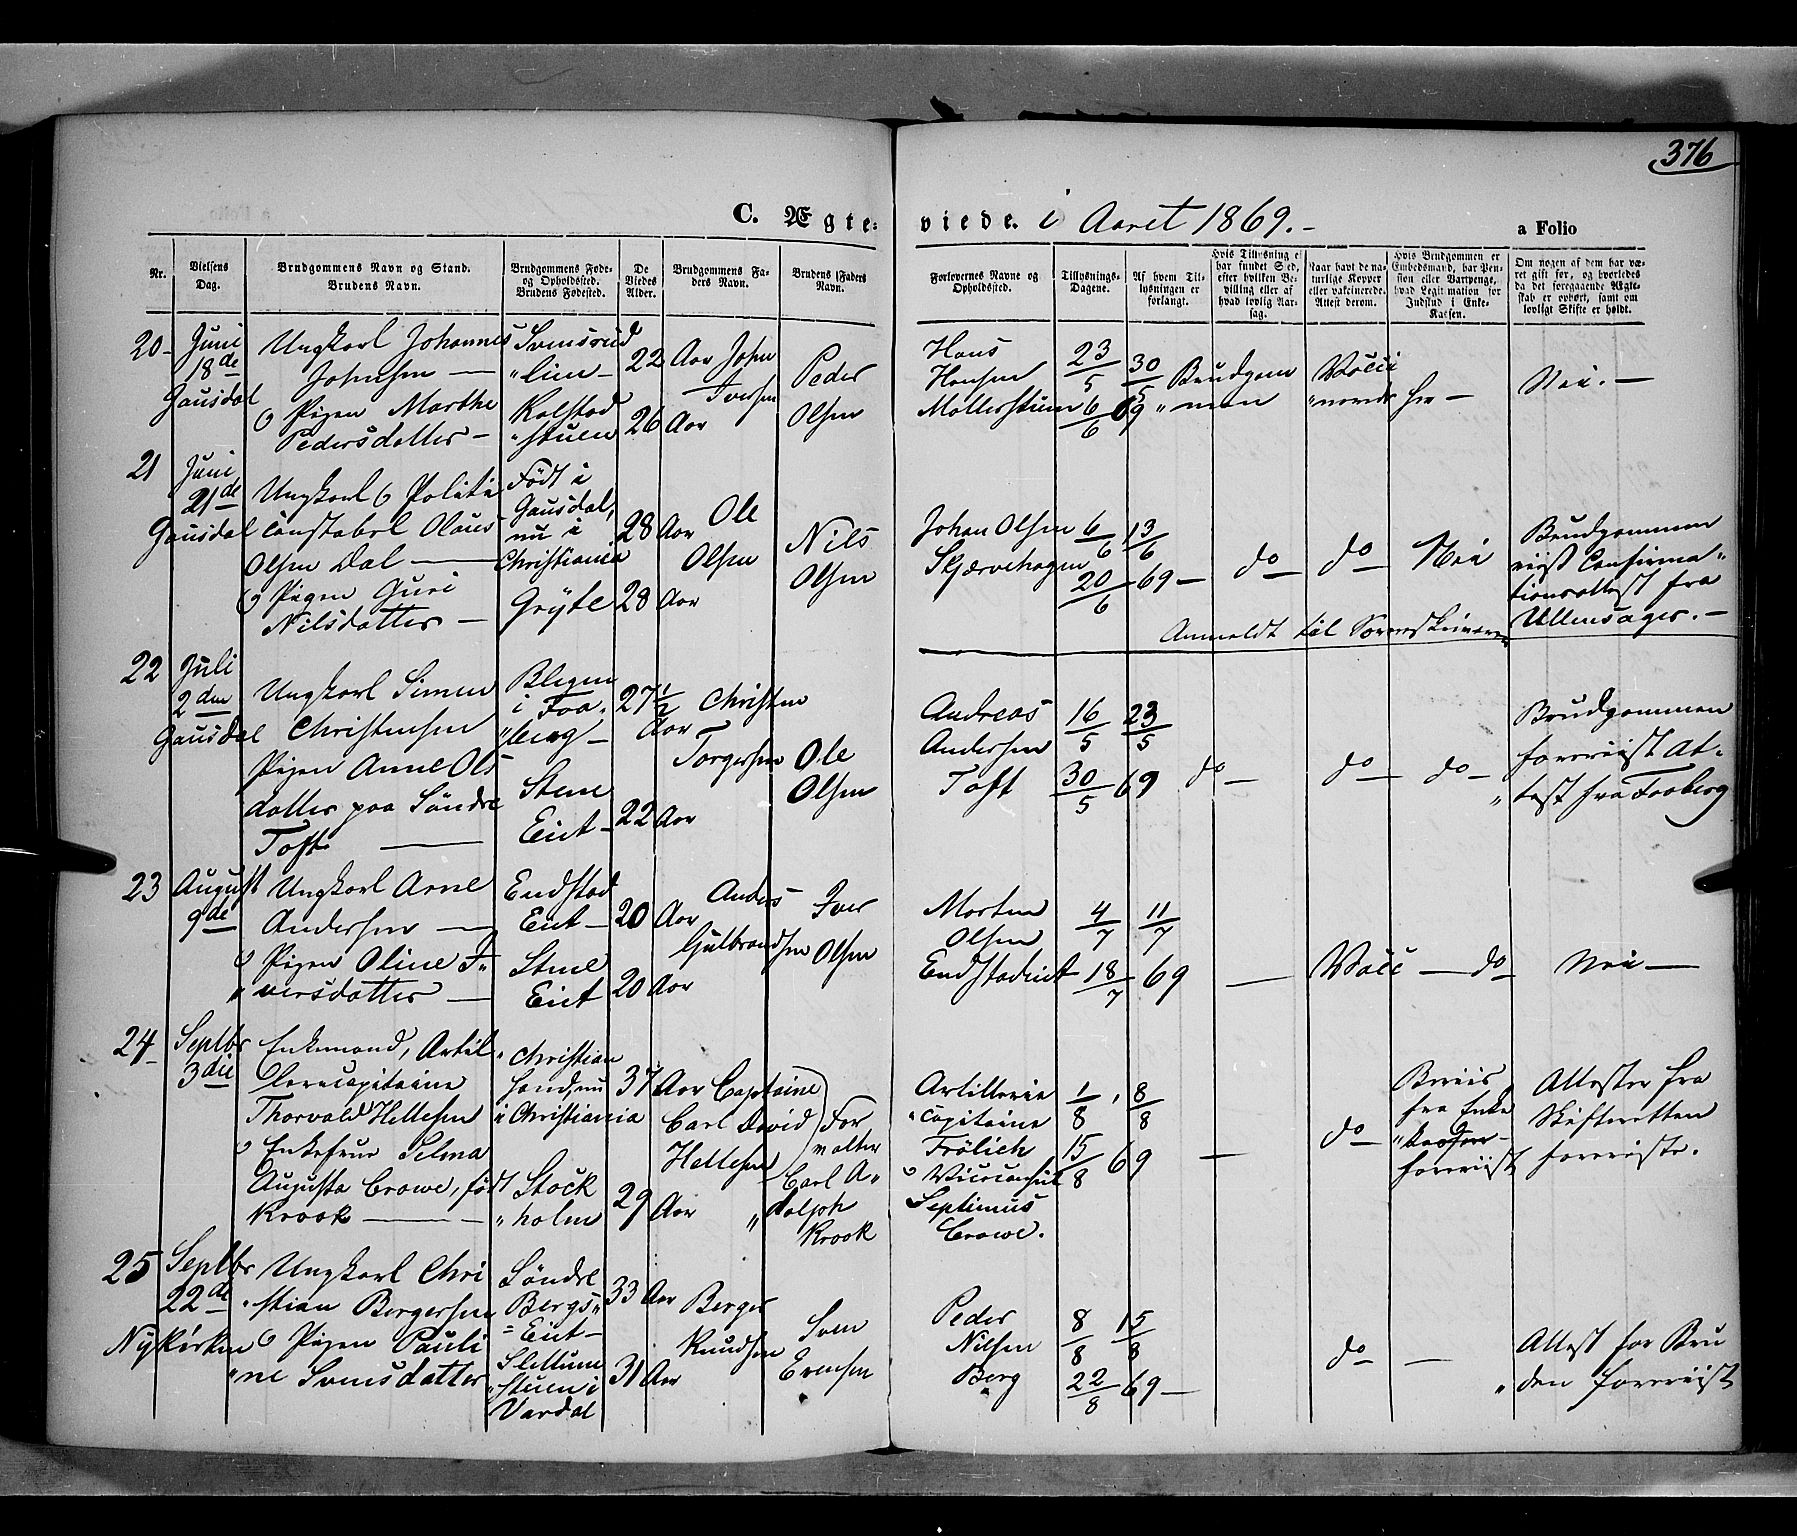 376
C. Ægte-
viede. i Aaret 1869.-
a Folio
Nr.
Vielsens Dag.
Brudgommens Navn og Stand. Brudens Navn.
Brudgommens Føde- og Opholdssted. Brudens Fødested.
De Viedes Alder.
Brudgommens Faders Navn.
Brudens Faders Navn.
Forlovernes Navne og Opholdssted.
Tillysnings-Dagene.
Af hvem Tillysningen er forlangt.
Hvis Tillysning ei har fundet Sted, efter hvilken Bevilling eller af hvad lovlig Aarsag.
Naar havt de naturlige Kopper eller vaksinerede. Attest derom.
Hvis Brudgommen er Embedsmand, har Pension eller Vartpenge, hvad Legitimation for Indskud i Enke-Kassen.
Om nogen af dem har været gift før, og hvorledes da det foregaaende Ægteskab er ophørt, samt om lovligt Skifte er holdt.
20
Juni
18de
Gausdal
Ungkarl Johannes
Johnsen —
o Pigen Marthe
Pedersdatter —
Svensrud
"lien —
Kalstad
"stuen
22 Aar
26 Aar
John
Iversen
Peder
Olsen
Hans
Hansen
Møllerstuen
23/5 30/5
6/6 69
Brudgom
"men
Vacci
"nerede
Nei. —
21
Juni
21de
Gausdal
Ungkarl o Politi
constabel Olaus
Olsen Dal —
o Pigen Guri
Nilsdatter —
Født i
Gausdal,
nu i
Christiania
Gryte
28 Aar
28 Aar
Ole
Olsen
Nils
Olsen
Johan Olsen
Skjærvehagen
6/6 13/6
20/6 69 —
do
do
Nei
Brudgommen
viist Confirma"
tionsattest fra
Ullensager. —
Anmeldt til Sorenskriveren
22
Juli
2den
Gausdal
Ungkarl Simen
Christensen
Pigen Anne Ols
datter paa Søndre
Toft —
Blegen
i Faa.
"berg —
Stene
Eiet —
27 1/2
Aar
22 Aar
Christen
Torgersen
Ole
Olsen
Andreas
Andersen
Toft
16/5 23/5
30/5 69
do —
do —
do —
Brudgommen
foreviist At-
"test fra Faaberg
23
August
9de
Ungkarl Arne
Andersen —
o Pigen Oline I"
"versdatter —
Endstad
Eiet —
Stene
Eiet
20 Aar
20 Aar
Anders
Gulbrandsen
Iver
Olsen
Morten
Olsen
Endstadeiet
4/7 11/7
18/7 69
—
Vacc — do
Nei —
24
Septbr
3die
Enkemand, Artil"
lericapitaine
Thorvald Hellesen
o Enkefrue Selma
Augusta Crowe, født
Krook —
Christian
sand, nu
i Christiania
Stock
"holm
37 Aar
29 Aar
Captaine
Carl David
Hellesen
For
valter
Carl A"
"dolph
Krook
Artillerie
"capitaine
Frølich
o Viceconsul
Septimus
Crowe.
1/8 8/8
15/8 69
—
do
Beviis
fra Enke
foreviist
Attester fra
Skifteretten
foreviste.
25
Septbr
22de
Nykirken
Ungkarl Chri
"stian Bergersen
o Pigen Pauli
"ne Svensdatter
Søndre
Bergs"
=Eiet —
Slettum
"stuen i
Vardal
33 Aar
31 Aar
Berger
Knudsen
Sven
Evensen
Peder
Nilsen
Berg
8/8 15/8
22/8 69 —
do —
Attest for Bru
"den foreviist